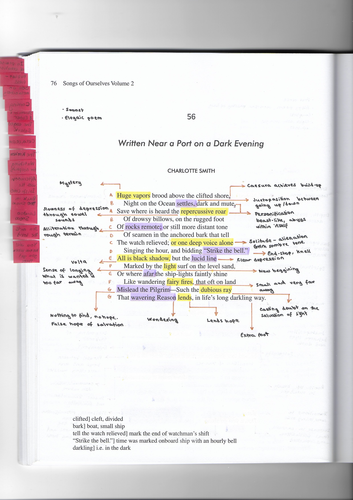 76 Songs of Ourselves Volume 2
- Sonnet
- Elegaic poem
56
Written Near a Port on a Dark Evening
CHARLOTTE SMITH
Mystery
Caesura achieved build-up
A Huge vapors brood above the clifted shore,
B Night on the Ocean settles, dark and mute,
Juxtaposition between
going up/down
A Save where is heard the repercussive roar
Slowness of depression
through vowel
sounds
Personification
beast-like,
within itself
B Of drowsy billows, on the rugged foot
C Of rocks remote; or still more distant tone
Alliteration through
rough terrain
D Of seamen in the anchored bark that tell
C The watch relieved; or one deep voice alone
Solitude - alienation
from sombre tone
D Singing the hour, and bidding "Strike the bell."
End-stop, knell
E All is black shadow, but the lucid line
Volta
F Marked by the light surf on the level sand,
Sense of longing
what is wanted is
too far away
New beginning
E Or where afar the ship-lights faintly shine
F Like wandering fairy fires, that oft on land
Small and very far
away
G Mislead the Pilgrim—Such the dubious ray
G That wavering Reason lends, in life's long darkling way.
Nothing to find, no hope.
False hope of salvation
Wondering
Lends hope
Casting doubt on the
salvation of light
Extra foot
clifted] cleft, divided
bark] boat, small ship
tell the watch relieved] mark the end of watchman's shift
"Strike the bell."] time was marked onboard ship with an hourly bell
darkling] i.e. in the dark